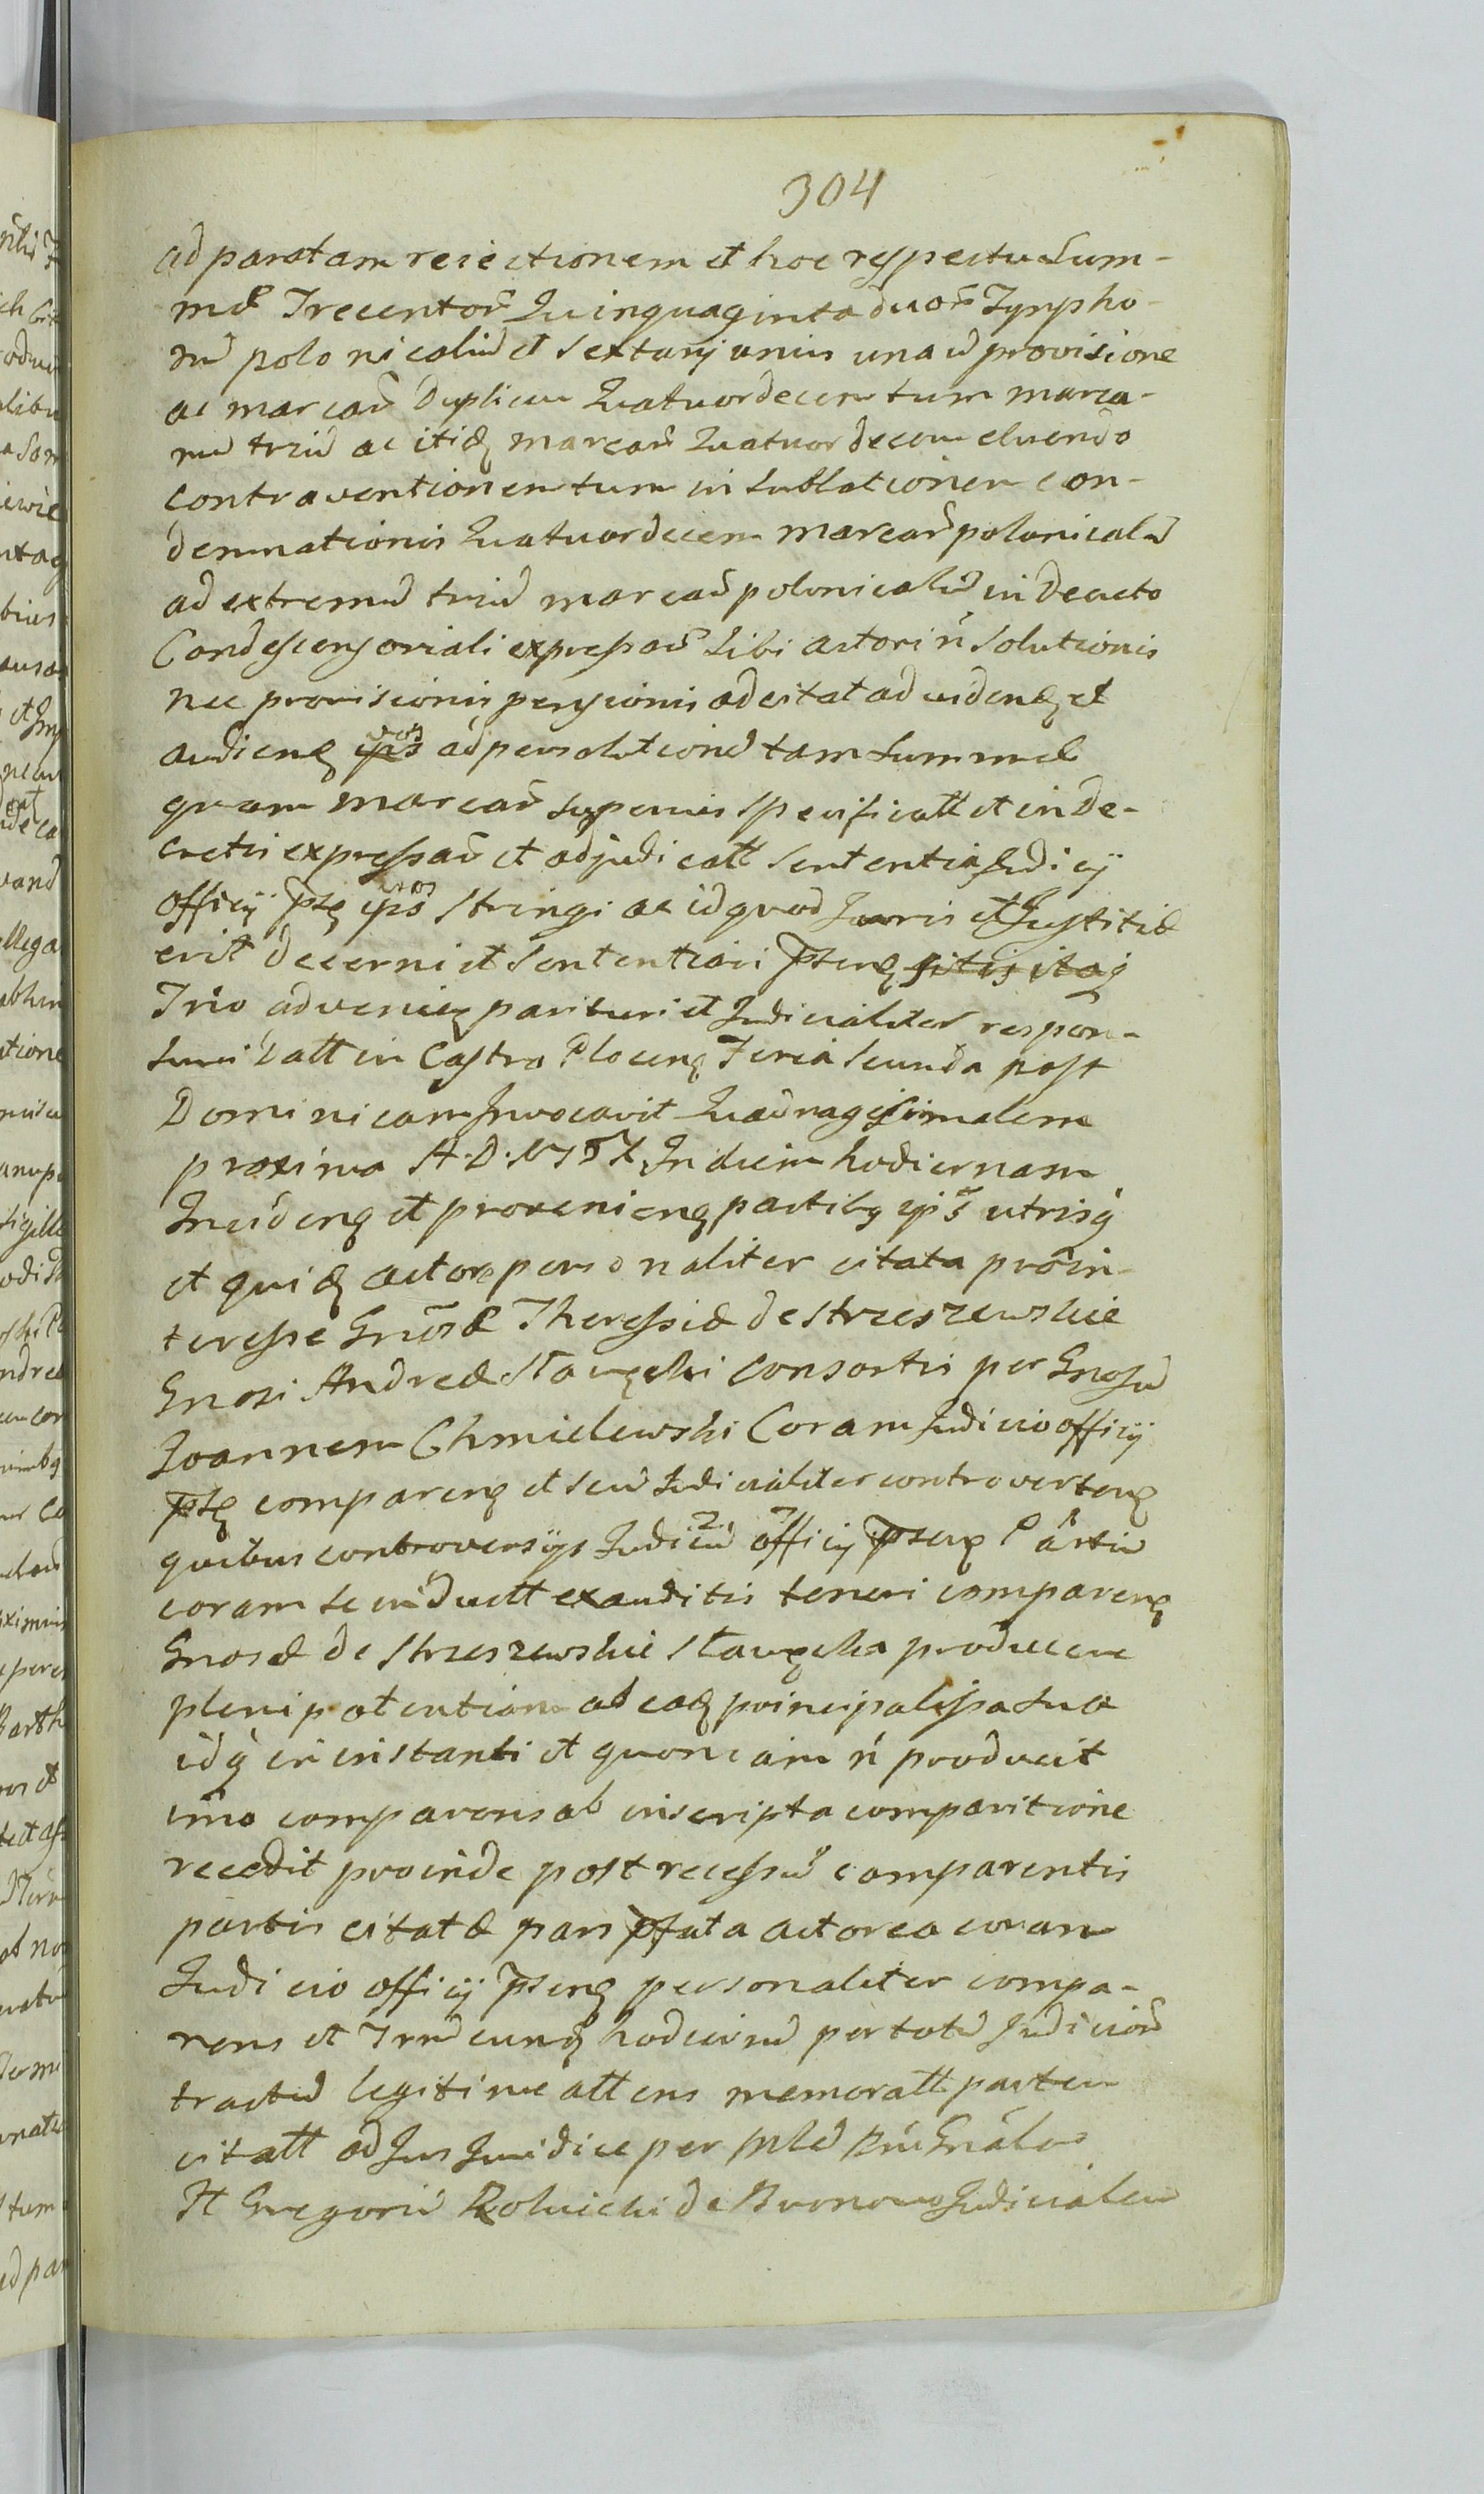 304
ad paratam reiectionem et hoc respectu Sum-
mæ Trecentor̃ Quinquaginta duor̃ Tynpho-
rũ polonicaliũ et Sextarij unius una cũ provisione
ac marcar̃ Duplicu Quatuordecem tum marca-
rũ triũ ac itidẽ marcar̃ Quatuordecem eluendo
contraventionem tum in Sublationem con-
demnationis Quatuordecem marcar̃ polonicaliũ
ad extremũ triũ marcar̃ polonicaliũ in Decreto
Condescensoriali expressar̃ Sibi actori ñ Solutionis
nec provisionis pensionis adcitat ad videnđ et
audienđ ip̃s vos ad persolutionẽ tam Summæ
quam marcar̃ Superius specificatt et in De-
cretis expressar̃ et adjudicatt Sententia Judicij
officij p̃tis ip̃s vos Stringi ac id quod Juris et Justitiæ
erit decerni et Sententiari p̃senţ sitis itaq́
Trṁo advenien parituri et Judicialiter respon-
suri Datt in Castro Plocenş Feria Secunda post
Dominicam Invocavit Quadragesimalem
proxima A. D. 1757 In diem hodiernam
Inciden et provenien partibꝫ ip̃s utrisq́
et quidẽ actore personaliter citata pro in-
teresse Gnosæ Theressiæ de Strzeszewskie
Gnosi Andreæ Stawęcki Consortis per Gnosũ
Joannem Chmielewski Coram Judicio officij
p̃tis comparen et Secũ Judicialiter controverten
quibus controversijs Judiciũ officij p̃senş Partiũ
coram se induct exauditis teneri comparen
Gnosæ de Strzeszewskie Stawęcka producere
plenipotentiam ab eadẽ principalissa Sua
idq́ in instanti et quoniam ñ producit
imo comparens ab inscripta comparitione
recedit proinde post recessũ comparentis
partis citatæ pars p̃fata actorea coram
Judicio officij p̃senş personaliter compa-
rens et Trnũ eundẽ hodiernũ per totũ Judicior̃
tractũ legitime attens memoratt partem
citatt ad Jus Juridice per Mlẽ Rni Gnãlem
It Gregoriũ Rolnicki de Bronowo Judicialem